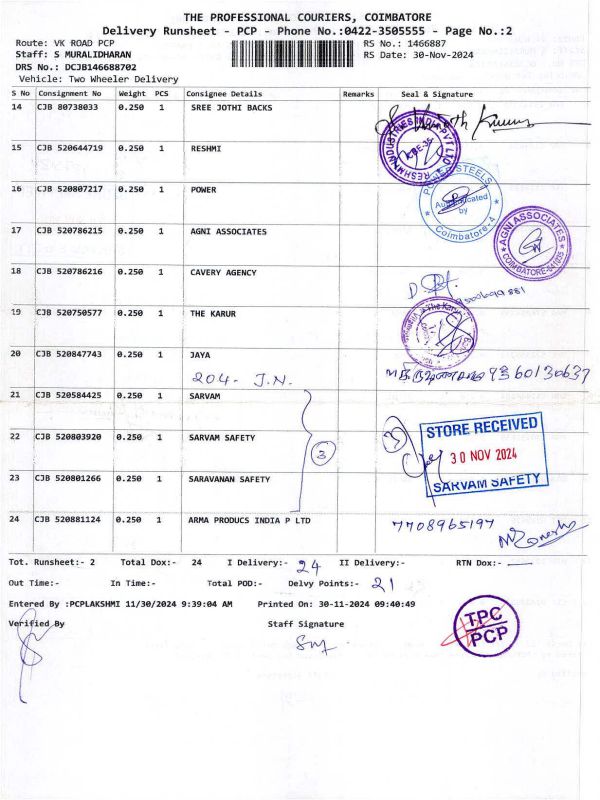 THE PROFESSIONAL COURIERS, COIMBATORE
Delivery Runsheet - PCP - Phone No.:0422-3505555 - Page No.:2
Route: VK ROAD PCP RS No.: 1466887
Staff: S MURALIDHARAN RS Date: 30-Nov-2024
DRS No.: DCJB146688702
Vehicle: Two Wheeler Delivery
S No Consignment No Weight PCS Consignee Details Remarks Seal & Signature
14 CJB 80738033 0.250 1 SREE JOTHI BACKS
15 CJB 520644719 0.250 1 RESHMI
RESHMI INDUSTRIES INDIA PVT LTD
CBE-35
16 CJB 520807217 0.250 1 POWER
POWER STEELS
Authenticated
by
Coimbatore-4
17 CJB 520786215 0.250 1 AGNI ASSOCIATES
AGNI ASSOCIATES
COIMBATORE-641025
18 CJB 520786216 0.250 1 CAVERY AGENCY
19 CJB 520750577 0.250 1 THE KARUR
The Karur
20 CJB 520847743 0.250 1 JAYA
204- J.N. 9360130637
21 CJB 520584425 0.250 1 SARVAM
22 CJB 520803920 0.250 1 SARVAM SAFETY
3
3
STORE RECEIVED
30 NOV 2024
SARVAM SAFETY
23 CJB 520801266 0.250 1 SARAVANAN SAFETY
24 CJB 520881124 0.250 1 ARMA PRODUCS INDIA P LTD 7708965197
Tot. Runsheet:- 2 Total Dox:- 24 I Delivery:- 24 II Delivery:- RTN Dox:-
Out Time:- In Time:- Total POD:- Delvy Points:- 21
Entered By :PCPLAKSHMI 11/30/2024 9:39:04 AM Printed On: 30-11-2024 09:40:49
Verified By Staff Signature
TPC
PCP